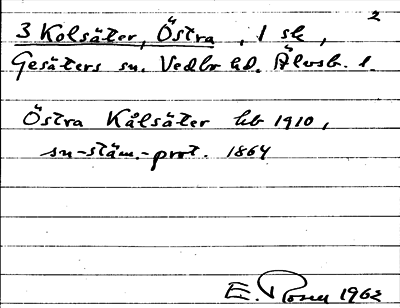 2
3 Kolsäter, Östra, 1 sk,
Gesäters sn. Vedbo hd. Älvsb. l.
Östra Kålsäter hb 1910,
sn-stäm.-prot. 1864
E. Rosen 1962